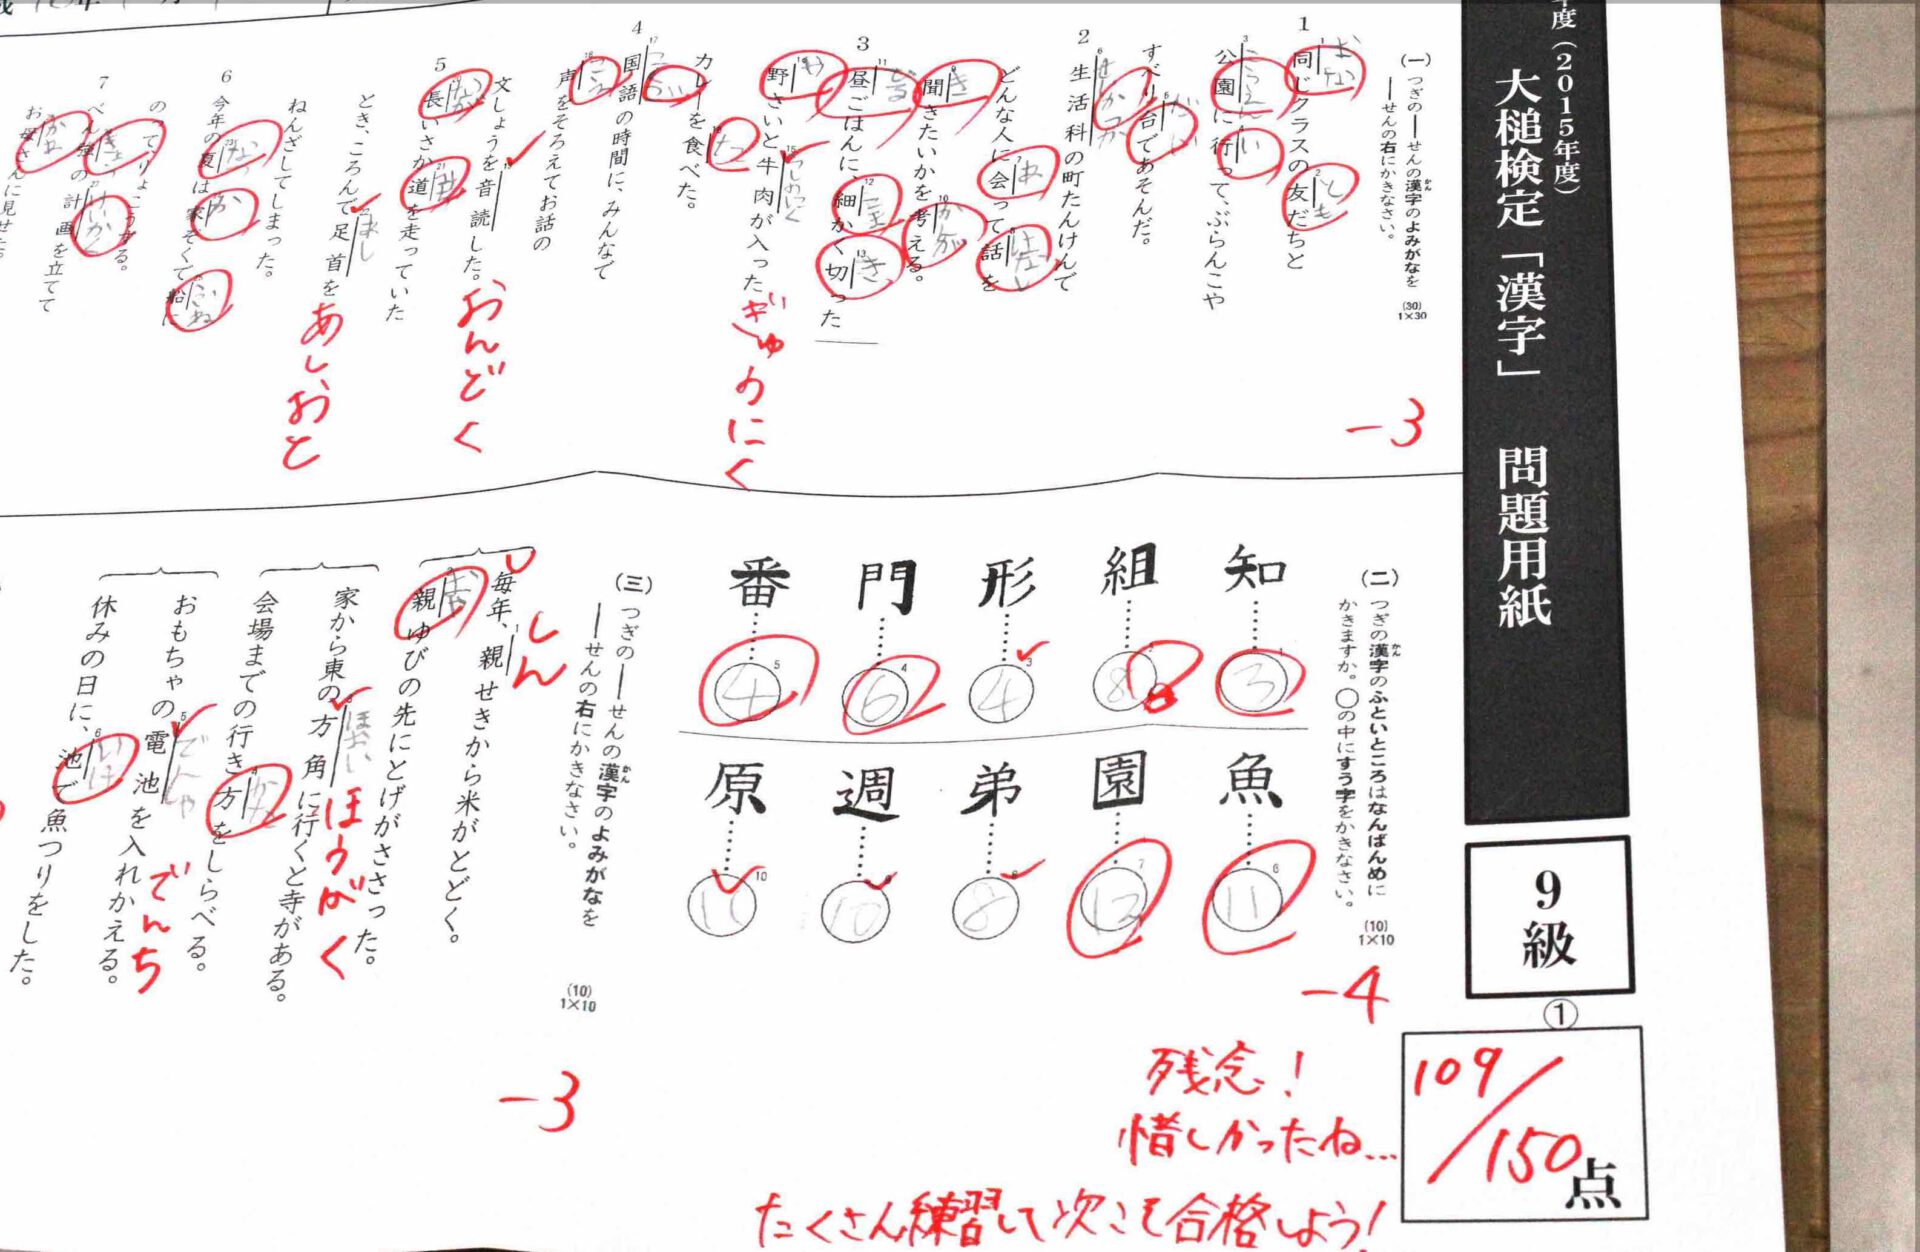 年度(2015年度)
大槌検定「漢字」 問題用紙
9級
①
109/150点
(一) つぎの――せんの漢字のよみがなを
――せんの右にかきなさい。
(30)
1×30
1 同じクラスの友だちと
公園に行って、ぶらんこや
すべり台であそんだ。
2 生活科の町たんけんで
どんな人に会って話を
聞きたいかを考える。
3 昼ごはんに、細かく切った
野さいと牛肉が入った
カレーを食べた。
4 国語の時間に、みんなで
声をそろえてお話の
文しょうを音読した。
5 長いさか道を走っていた
とき、ころんで足首を
ねんざしてしまった。
6 今年の夏は家ぞくで船に
のってりょこうする。
7 べん強の計画を立てて
お母さんに見せた。
とも
い
だい
あ
はなし
き
かんが
ひる
こま
き
や
ぎゅうにく
た
こえ
おんどく
なが
みち
あしおと
ふね
けいかく
-3
(二) つぎの漢字のふといところはなんばんめに
かきますか。○の中にすう字をかきなさい。
(10)
1×10
知 3
組 8
形 4
門 6
番 4
魚 11
園 12
弟 8
週 10
原
-4
(三) つぎの――せんの漢字のよみがなを
――せんの右にかきなさい。
(10)
1×10
毎年、親せきから米がとどく。
しん
親ゆびの先にとげがささった。
おや
家から東の方角に行くと寺がある。
ほうがく
会場までの行き方をしらべる。
かた
おもちゃの電池を入れかえる。
でんしゃ
でんち
休みの日に、池で魚つりをした。
いけ
-3
残念!
惜しかったね…
たくさん練習して次こそ合格しよう!